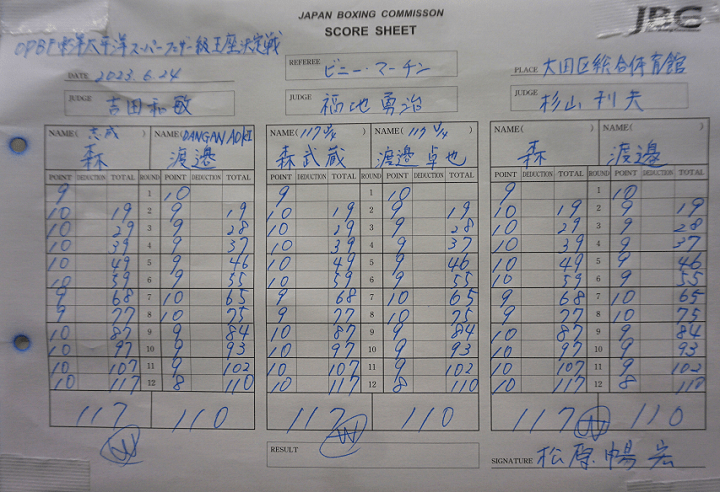 JAPAN BOXING COMMISSON
SCORE SHEET
JBC
OPBF東洋太平洋スーパーフェザー級王座決定戦
DATE 2023.6.24
REFEREE ビニー・マーチン
PLACE 大田区総合体育館
JUDGE 吉田和敏
JUDGE 福地勇治
JUDGE 杉山利夫
NAME( 志成 ) NAME( DANGAN AOKI NAME( 117 1/4 ) NAME( 117 1/4 ) NAME( ) NAME( )
森 渡邉 森武蔵 渡邉卓也 森 渡邉
POINT DEDUCTION TOTAL ROUND POINT DEDUCTION TOTAL POINT DEDUCTION TOTAL ROUND POINT DEDUCTION TOTAL POINT DEDUCTION TOTAL ROUND POINT DEDUCTION TOTAL
9 1 10 9 1 10 9 1 10
10 19 2 9 19 10 19 2 9 19 10 19 2 9 19
10 29 3 9 28 10 29 3 9 28 10 29 3 9 28
10 39 4 9 37 10 39 4 9 37 10 39 4 9 37
10 49 5 9 46 10 49 5 9 46 10 49 5 9 46
10 59 6 9 55 10 59 6 9 55 10 59 6 9 55
9 68 7 10 65 9 68 7 10 65 9 68 7 10 65
9 77 8 10 75 9 77 8 10 75 9 77 8 10 75
10 87 9 9 84 10 87 9 9 84 10 87 9 9 84
10 97 10 9 93 10 97 10 9 93 10 97 10 9 93
10 107 11 9 102 10 107 11 9 102 10 107 11 9 102
10 117 12 8 110 10 117 12 8 110 10 117 12 8 110
117 110 117 110 117 W 110
W W
RESULT
SIGNATURE 松原暢宏